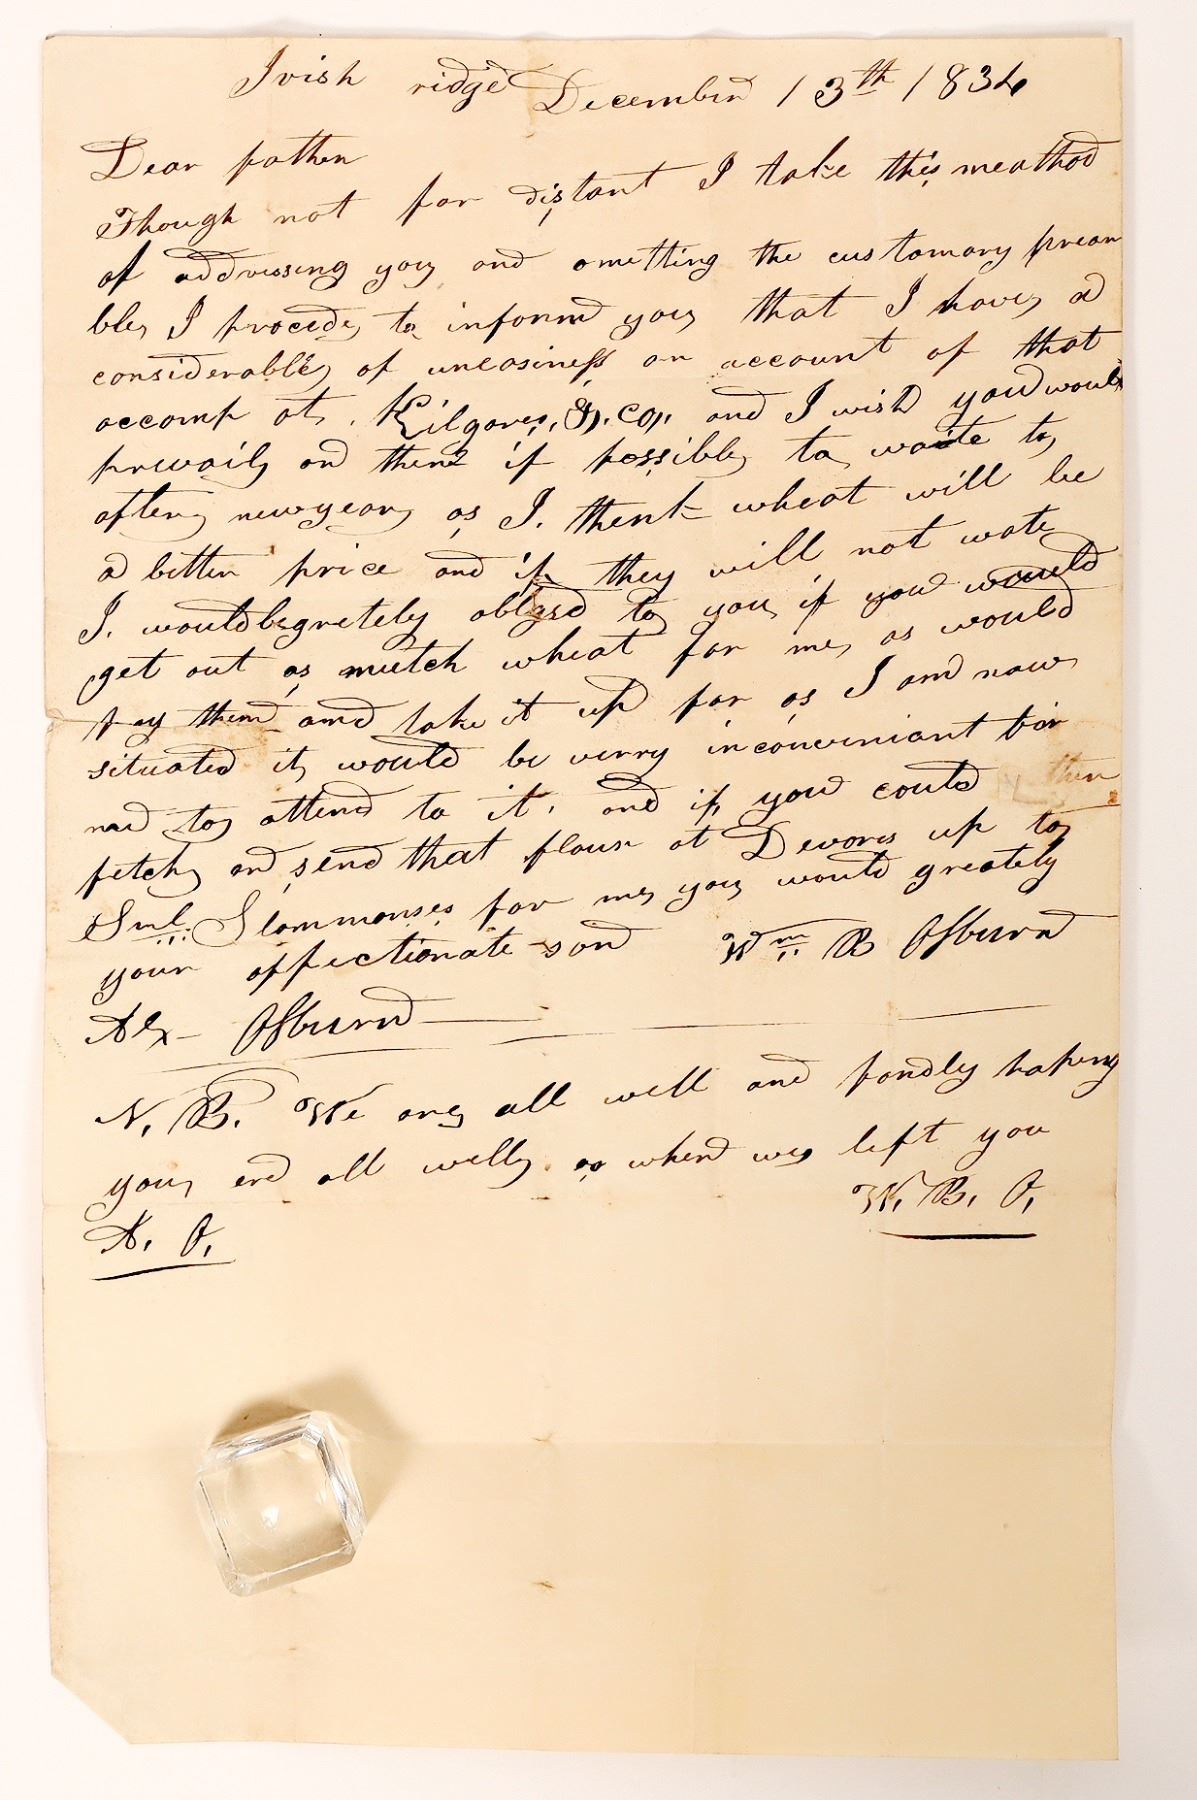 Irish ridge December 13th 1834
Dear father
Though not far distant I take this meathod
of addressing you and omitting the customary pream
ble I procede to inform you that I have a
considerable of uneasiness on account of that
accompt at Kilgores, & co, and I wish you would
prevail on them if possible to waite to
after newyear as I. think wheat will be
a better price and if they will not wate
I. would be gretely oblgsd to you if you would
get out as mutch wheat for me as would
pay them and take it up for as I am now
situated it would be verry inconveniant for
me to attend to it, and if you could then
fetch and send that flour at Devores up to
Sml. Slommonses for me you would greately
your affectionate son Wm B Osburn
Alx- Osburn
N. B. We are all well and fondly hopeing
you end all well as when we left you
W. B. O,
A. O,